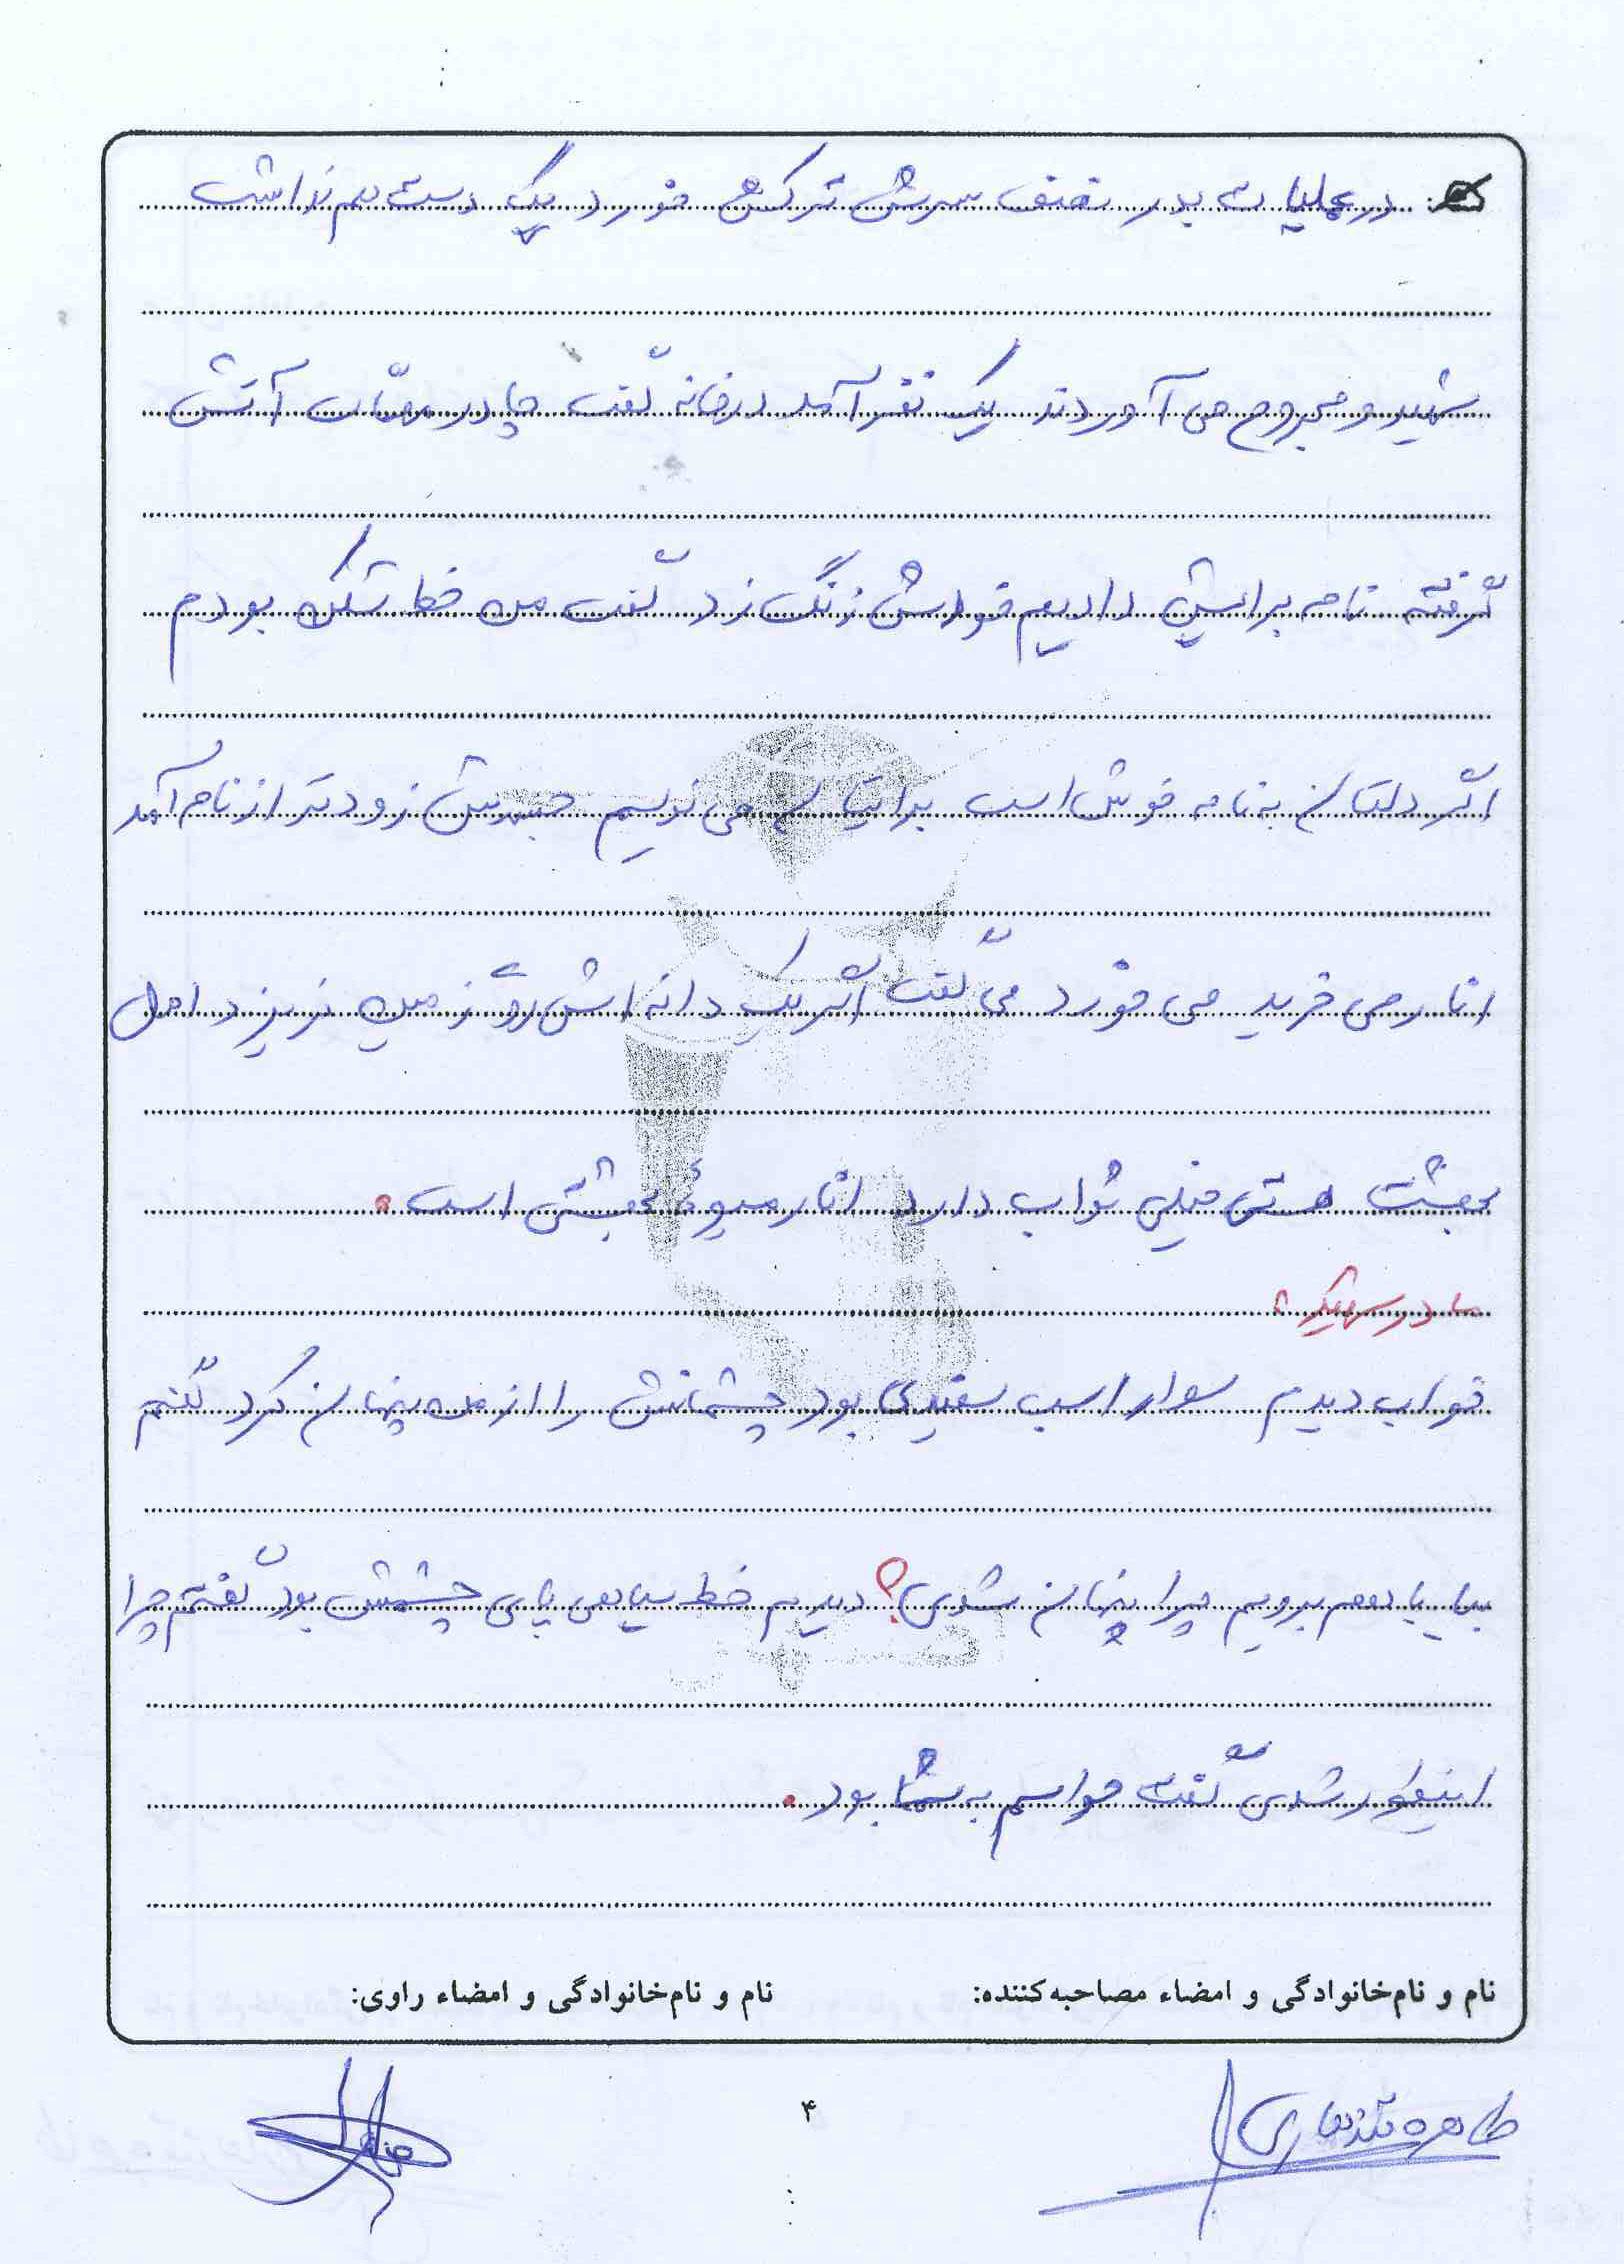 در عملیات بدر نصف سرش ترکش خورد یک دست هم نداشت
شهید و مجروح می آوردند یک نفر آمد در خانه گفت چادر مهمات آتش
گرفته نامه برایش دادیم خودش زنگ زد گفت من خط شکن بودم
اگر دلتان به نامه خوش است برایتان می نویسم جسدش زودتر از نامه آمد
انار می خرید می خورد می گفت اگر یک دانه اش رو زمین نریزد اهل
بهشت هستی خیلی ثواب دارد انار میوهٔ بهشتی است.
مادر شهید:
خواب دیدم سوار اسب سفیدی بود چشمانش را از من پنهان کرد گفتم
بیا با هم برویم چرا پنهان شدی؟ دیدم خط سیاهی پای چشمش بود گفتم چرا
اینطور شدی گفت حواسم به شما بود.
نام و نام‌خانوادگی و امضاء مصاحبه‌کننده:
نام و نام‌خانوادگی و امضاء راوی:
طاهره
۴